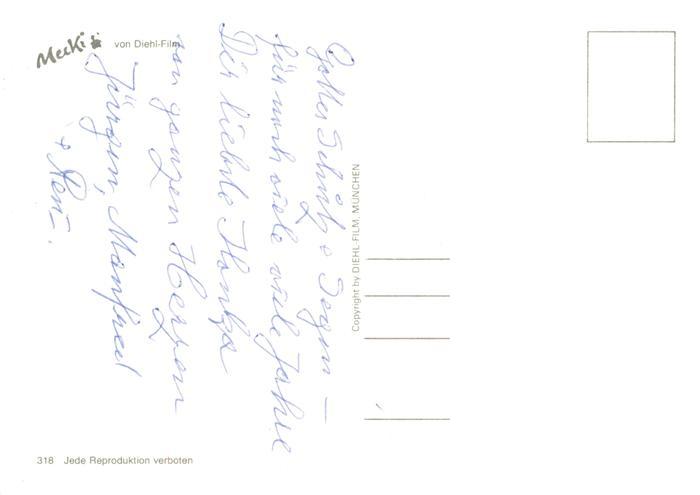 Mecki von Diehl-Film
Gottes Schutz + Segen –
für noch viele viele Jahre
Dir liebste Hanka
von ganzen Herzen
Jürgen, Manfred
+ Reni.
Copyright by DIEHL-FILM, MÜNCHEN
318 Jede Reproduktion verboten